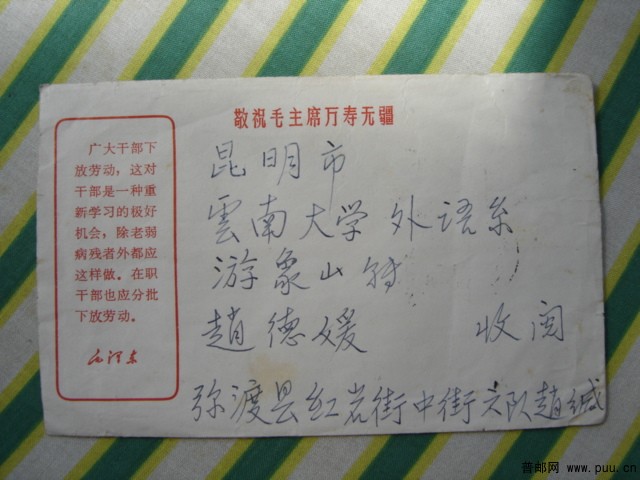 敬祝毛主席万寿无疆
广大干部下
放劳动，这对
干部是一种重
新学习的极好
机会，除老弱
病残者外都应
这样做。在职
干部也应分批
下放劳动。
毛泽东
昆明市
雲南大学外语系
游象山转
趙德媛 收阅
弥渡县红岩街中街六队趙缄
普邮网 www.puu.cn